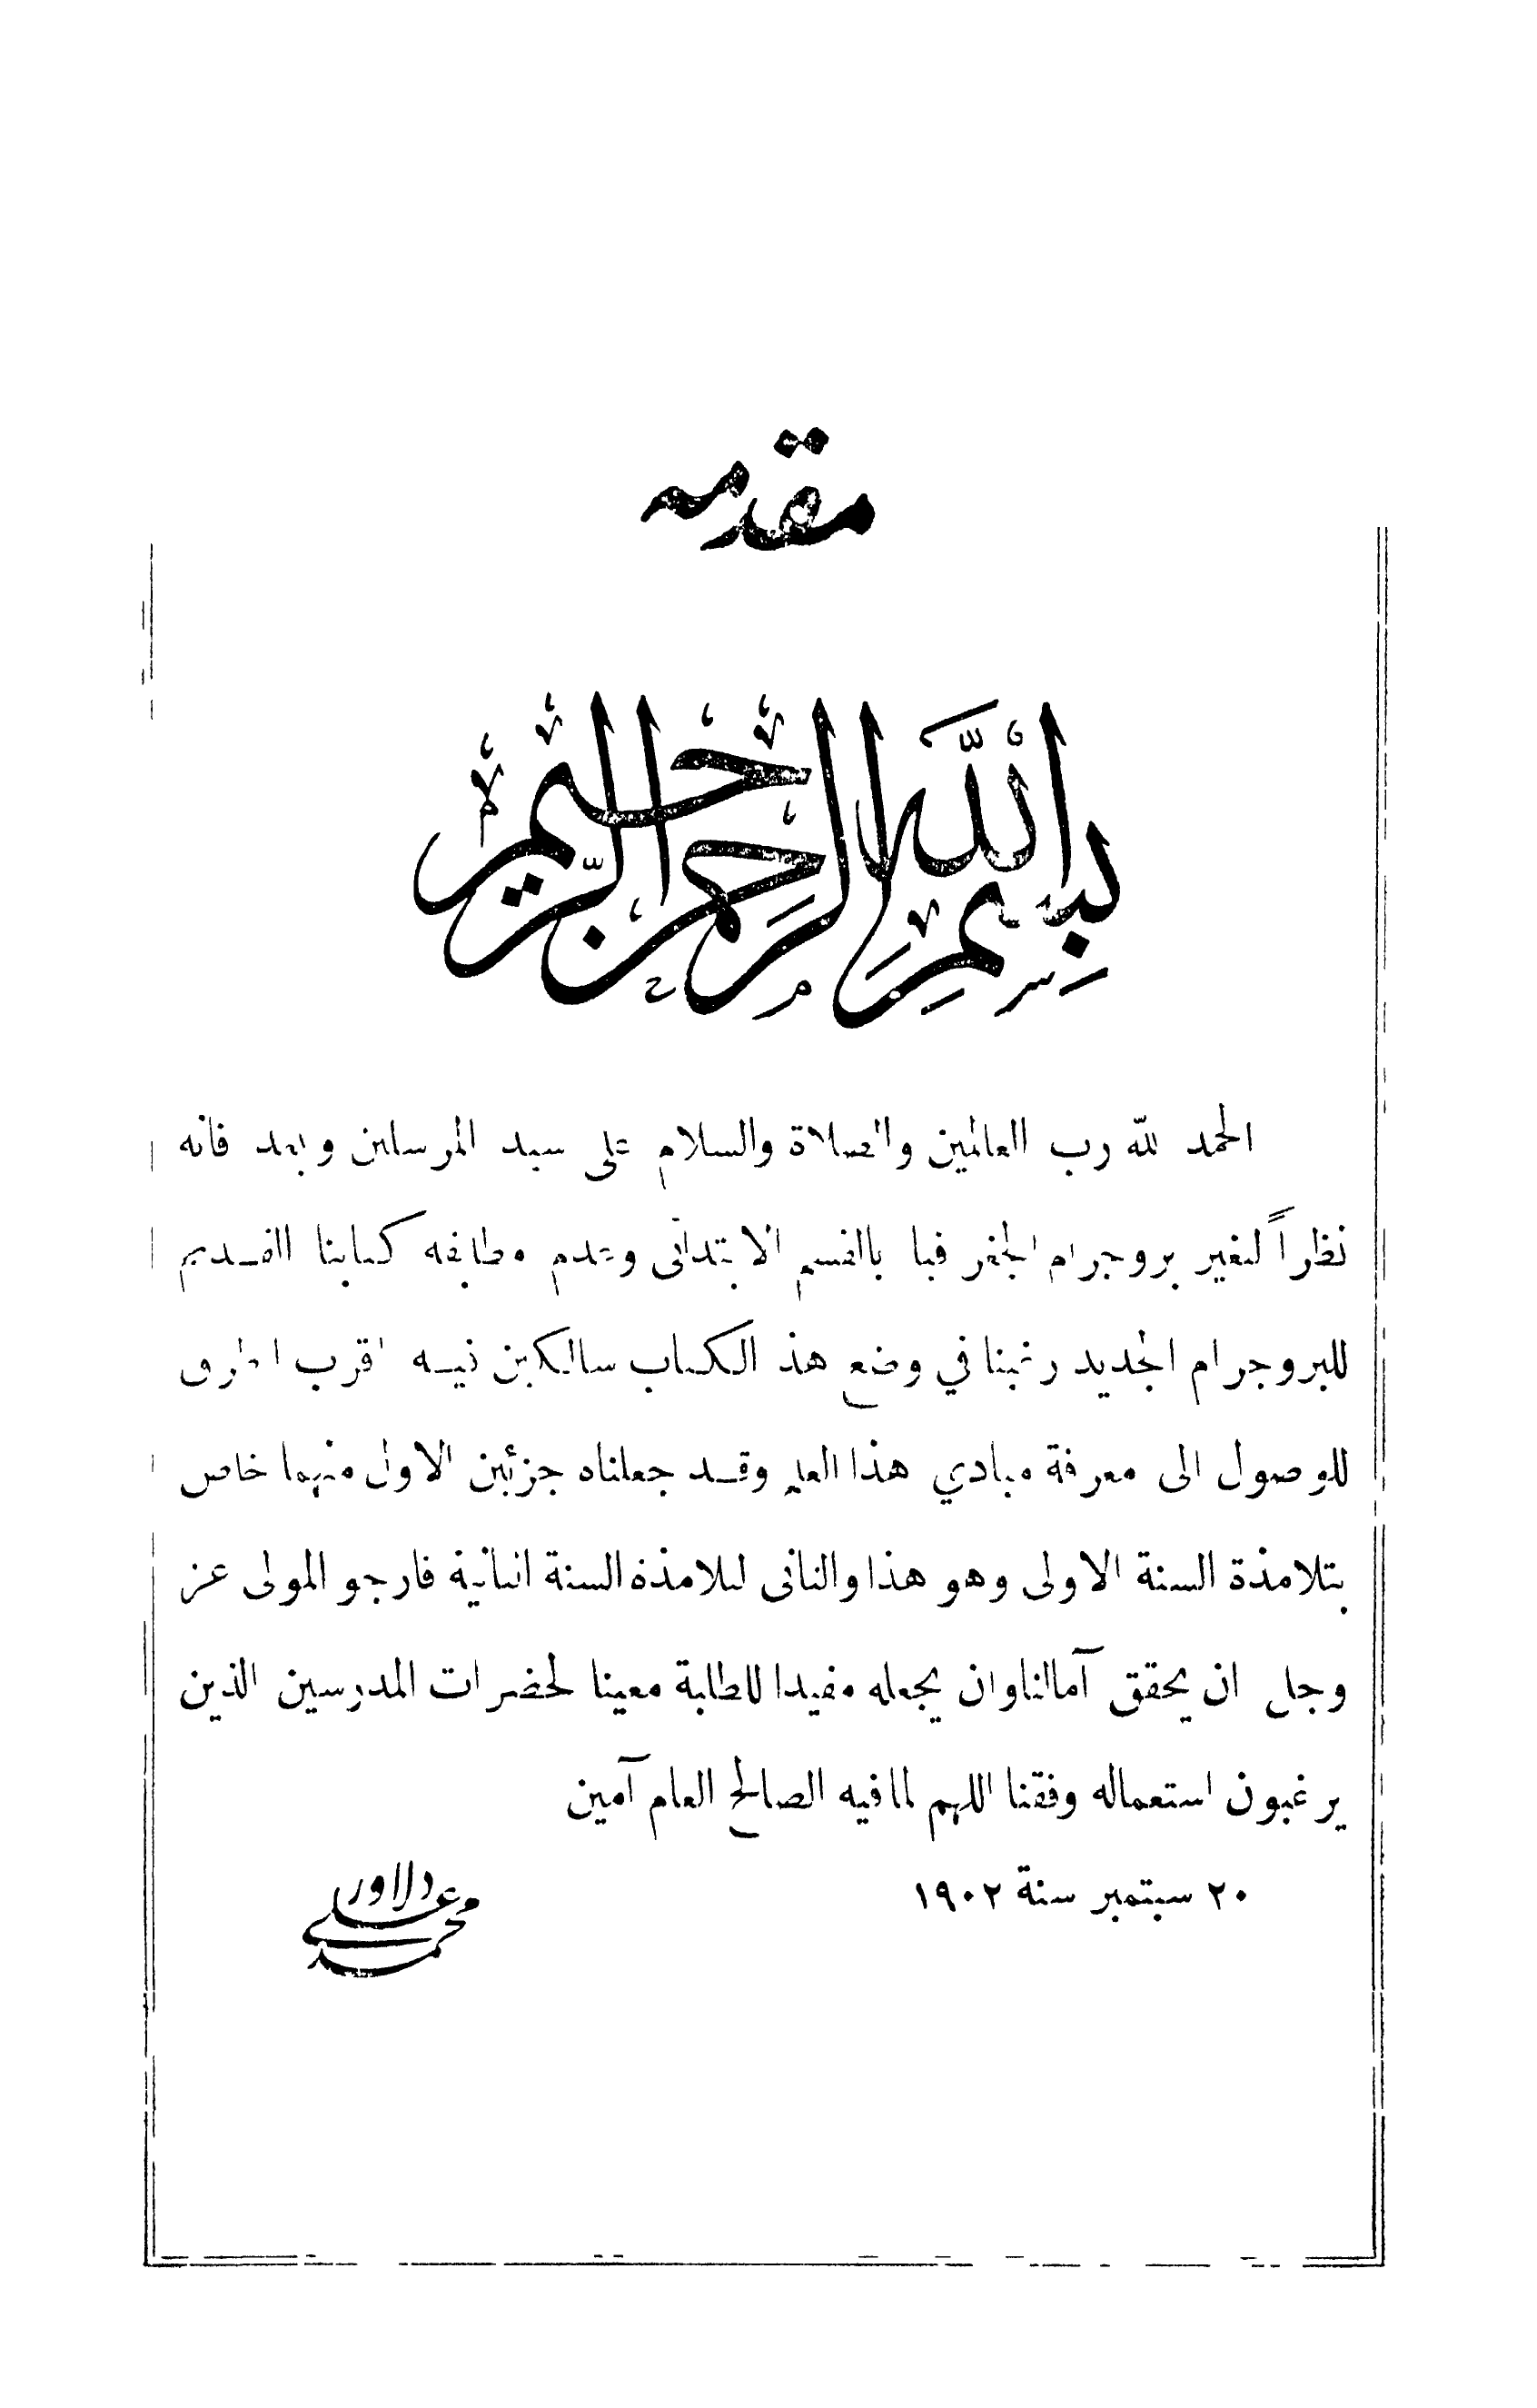 مقدمه
بسم الله الرحمن الرحيم
الحمد لله رب العالمين والصلاة والسلام على سيد المرسلين وبعد فانه
نظراً لتغير بروجرام الجغرافيا بالقسم الابتدائى وعدم مطابقه كتابنا القديم
للبروجرام الجديد رغبنا في وضع هذ الكتاب سالكين فيه اقرب الطرق
للوصول الى معرفة مبادي هذا العلم وقد جعلناه جزئين الاول منهما خاص
بتلامذة السنة الاولى وهو هذا والثانى لتلامذة السنة الثانية فارجو المولى عز
وجل ان يحقق آمالنا وان يجعله مفيدا للطلبة معينا لحضرات المدرسين الذين
يرغبون استعماله وفقنا اللهم لما فيه الصالح العام آمين
٢٠ سبتمبر سنة ١٩٠٢
محمد على دلاور